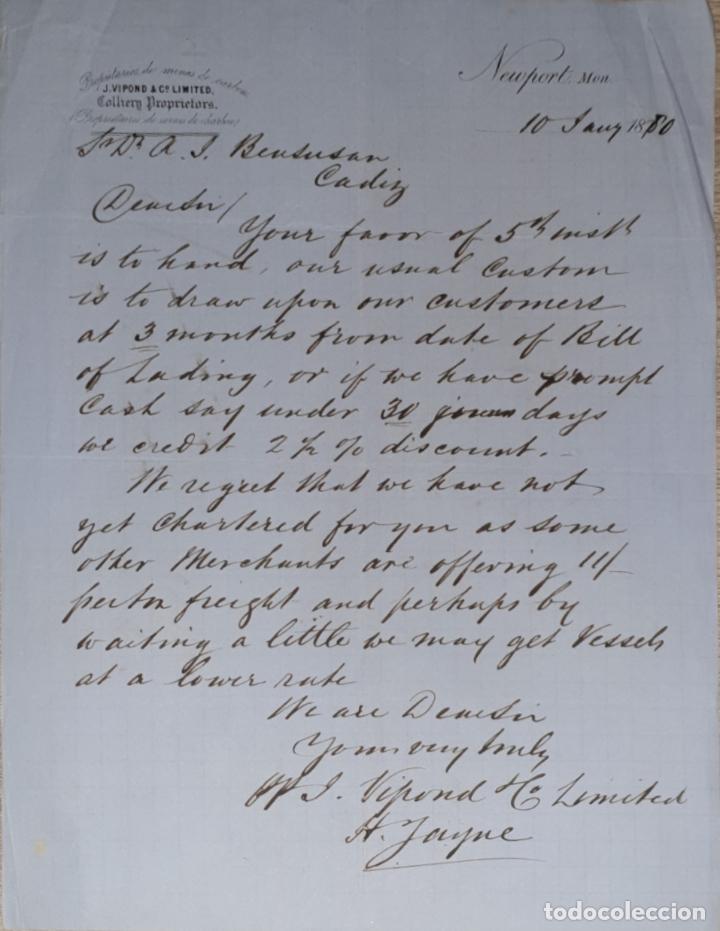 Propietarios de minas de carbon
J. VIPOND & Co. LIMITED,
Colliery Proprietors.
(Proprietários de minas de carbon)
Newport, Mon.
10 Jany 1880
Sr Dn A. J. Bensusan
Cadiz
Dear Sir/
Your favor of 5th inst
is to hand, our usual custom
is to draw upon our customers
at 3 months from date of Bill
of Lading, or if we have prompt
Cash say under 30 days
we credit 2½ % discount.-
We regret that we have not
yet chartered for you as some
other Merchants are offering 11/-
per ton freight and perhaps by
waiting a little we may get Vessels
at a lower rate
We are Dear Sir
Yours very truly
J. Vipond & Co Limited
H. Jayne
todocoleccion